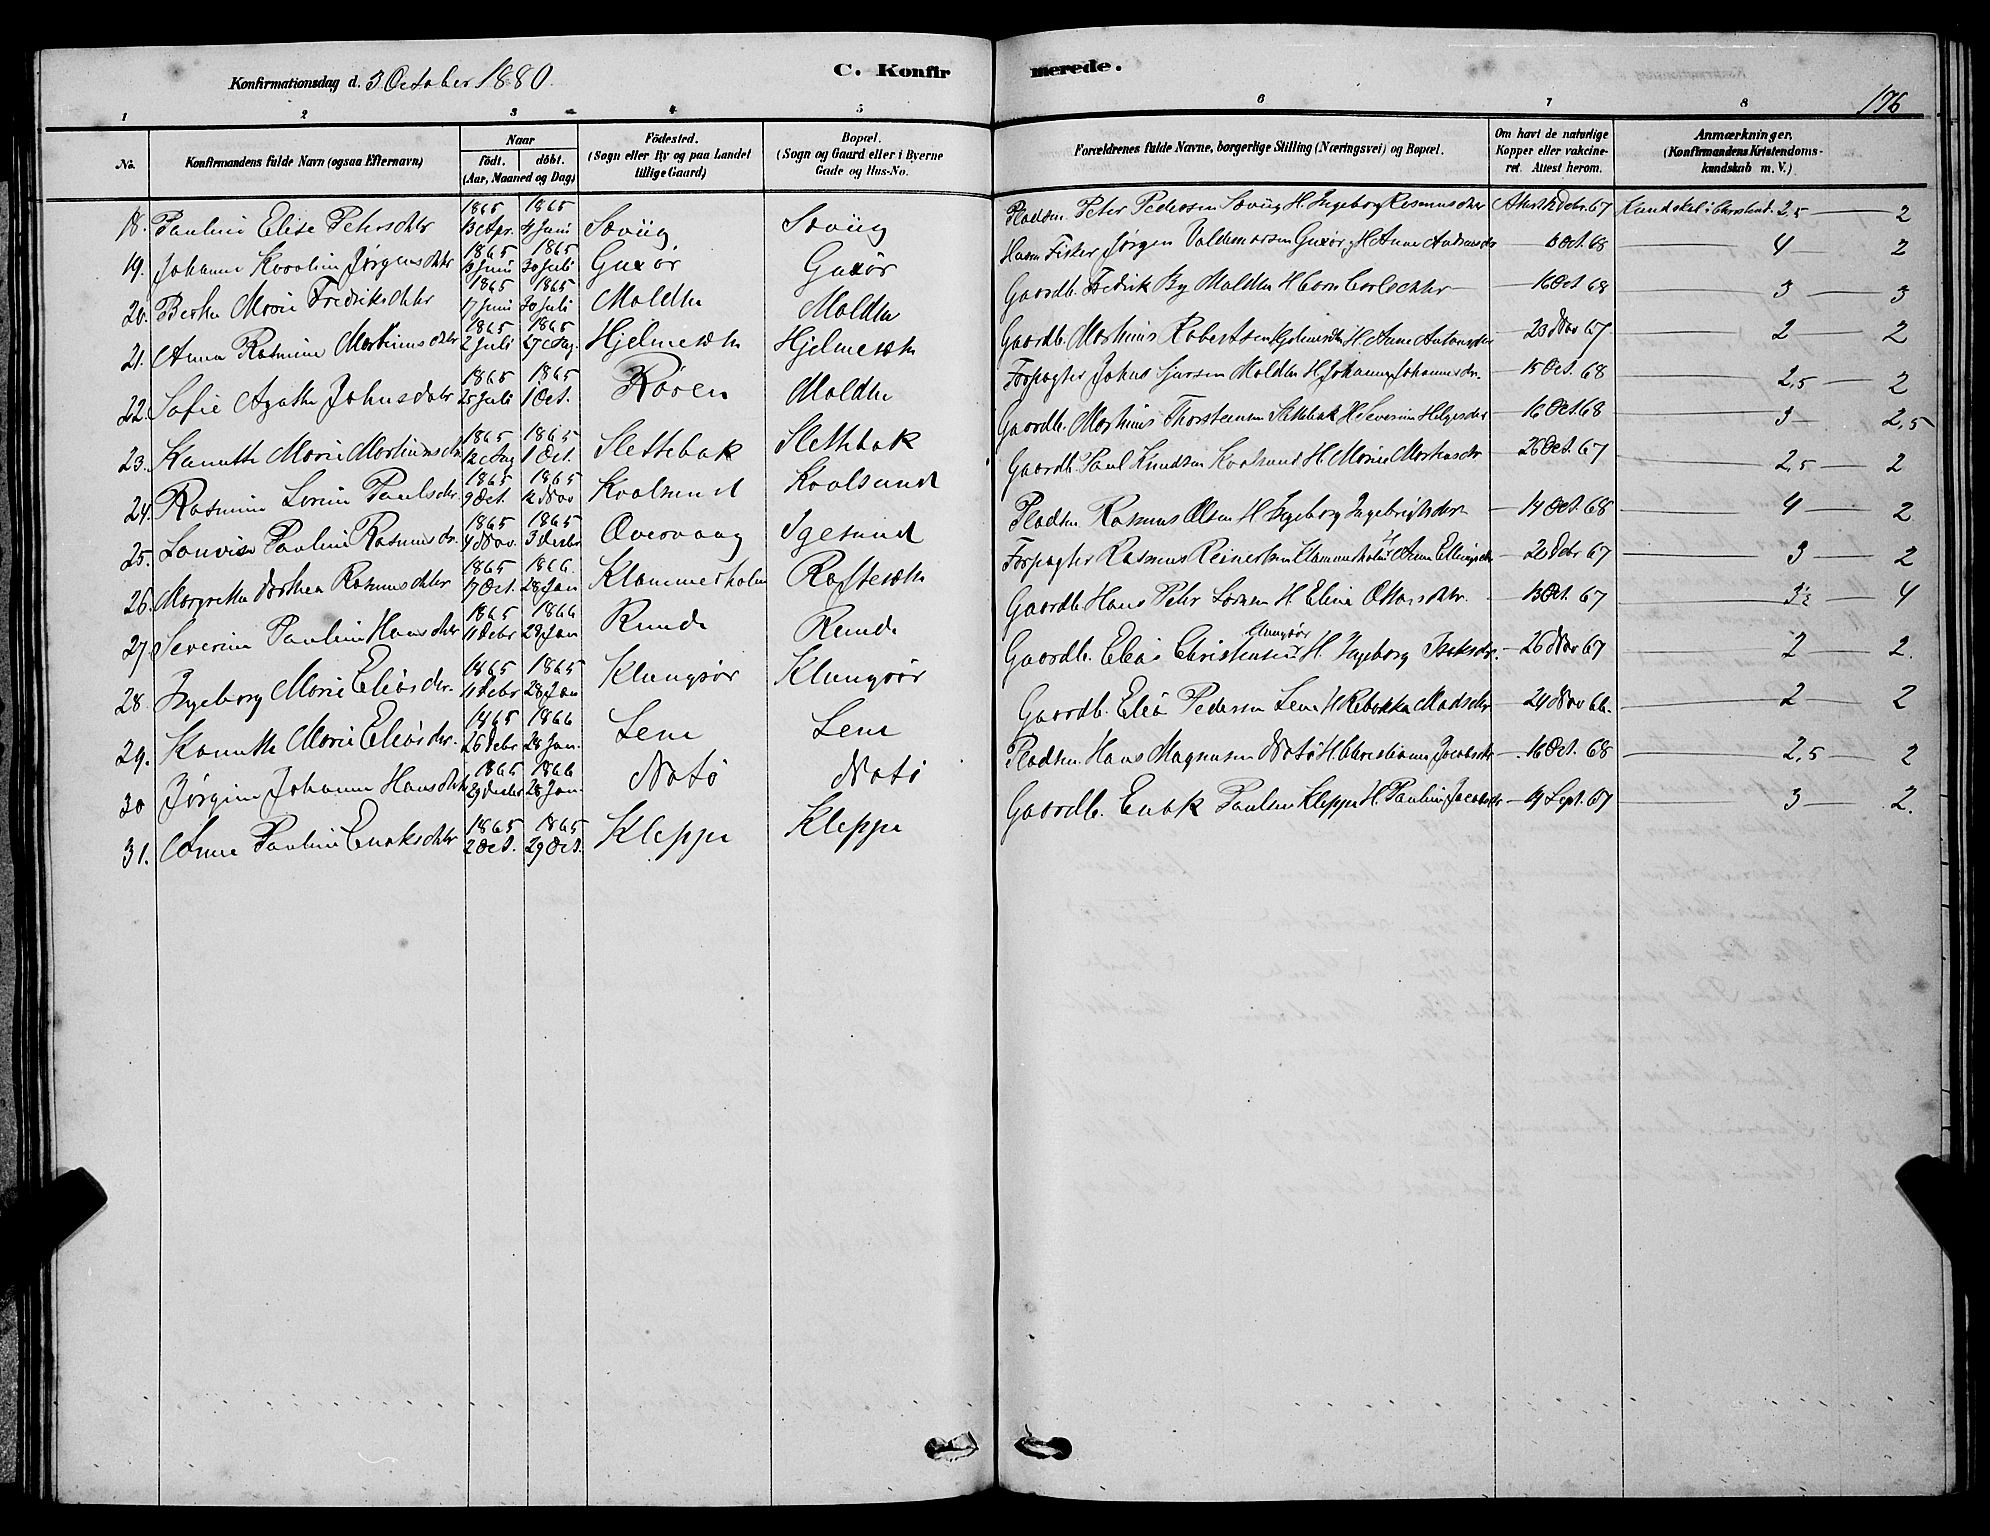 Konfirmationsdag d. 3 October 1880.
C. Konfirmerede.
176
1 2 3 4 5 6 7 8
No. Konfirmandens fulde Navn (ogsaa Efternavn) Naar födt. döbt. (Aar, Maaned og Dag) Födested. (Sogn eller By og paa Landet tillige Gaard) Bopæl. (Sogn og Gaard eller i Byerne Gade og Hus-No. Forældrenes fulde Navne, borgerlige Stilling (Næringsvei) og Bopæl. Om havt de naturlige Kopper eller vakcineret. Attest herom. Anmærkninger. (Konfirmandens Kristendomskundskab m. V.)
18. Pauline Elise Petersdtr 1865 13 Apr. 1865 4 Juni Søviig Søviig Pladsm. Peter Pedersen Søviig H. Ingeborg Rasmusdtr Attest 12 Debr. 67 Kundskab i Christend. 2,5 — 2
19. Johanne Karoline Jørgensdtr 1865 Juni 1865 30 Juli Guxør Guxør Huusm. Fisker Jørgen Valdemarsen Guxør, H. Anne Andreasdtr Oct. 68 4 — 2
20. Berthe Marie Fredriksdtr 1865 17 Juni 1865 30 Juli Molden Molden Gaardb. Fredrik By Molden H. Caroline Carlsdtr 16 Oct 68 3 — 3
21. Anna Rasmine Martinusdtr 1865 2 Juli 1865 27 Aug. Hjelmesæth Hjelmesæth Gaardb. Martinus Robertsen Hjelmesæth H. Anne Antonsdtr 23 Nov 67 2 — 2
22. Sofie Agathe Johnsdatr 1865 25 Juli 1865 1 Oct. Røren Molden Forpagter Johns Sjursen Molden H. Johanne Johannesdr. 15 Oct. 68 2,5 — 2
23. Kanutte Marie Martinusdr. 1865 12 Aug 1865 1 Oct. Slettebak Slettebak Gaardb. Martinus Thorsteensen Slettebak H. Severine Helgesdtr 16 Oct. 68 3 — 2,5
24. Rasmine Lorine Paulsdtr. 1865 9 Oct. 1865 12 Nov Kvalsund Kvalsund Gaardb. Paul Knudsen Kvalsund H. Marie Martinsdr 26 Oct. 67 2,5 — 2
25. Lovise Pauline Rasmusdr. 1865 4 Nov. 1865 3 Decbr Overvaag Igesund Pladsm. Rasmus Olsen H. Ingeborg Ingebrigtsdtr 14 Oct. 68 4 — 2
26. Margrethe Dorthea Rasmusdtr 1865 17 Oct. 1866. 28 Jan Klammerholm Røftesæth Forpagter Rasmus Reinertsen Klammerholm H. Anne Ellingsdr 20 Debr 67 3 — 2
27 Severine Pauline Hansdtr 1865 11 Debr 1866 28 Jan Runde Runde Gaardb. Hans Peter Larsen H. Eline Ottarsdtr. 13 Oct. 67 3½ — 4
28. Ingeborg Marie Eliasdr. 1865 11 Debr 1865 28 Jan Klungsør Klungsør Gaardb. Elias Christensen Klungsør H. Ingeborg Isaksdr. 26 Nov 67 2 — 2.
29. Kanutte Marie Eliasdr. 1865 26 Debr 1866 28 Jan. Lene Lene Gaardb. Elias Pedersen Lene H. Rebekka Madsdtr 24 Nov 66. 2 — 2
30 Jørgine Johanne Hansdtr 1865 29 Decbr 1866 28 Jan. Notø Notø Pladsm. Hans Magnusen Notø H. Christianne Jacobsdtr 16 Oct. 68 2,5 — 2
31. Anne Pauline Enoksdtr 1865 2 Oct. 1865 29 Oct. Kleppe Kleppe Gaardb. Enok Paulsen Kleppe H. Pauline Jacobsdr 19 Sept. 67 3 — 2.